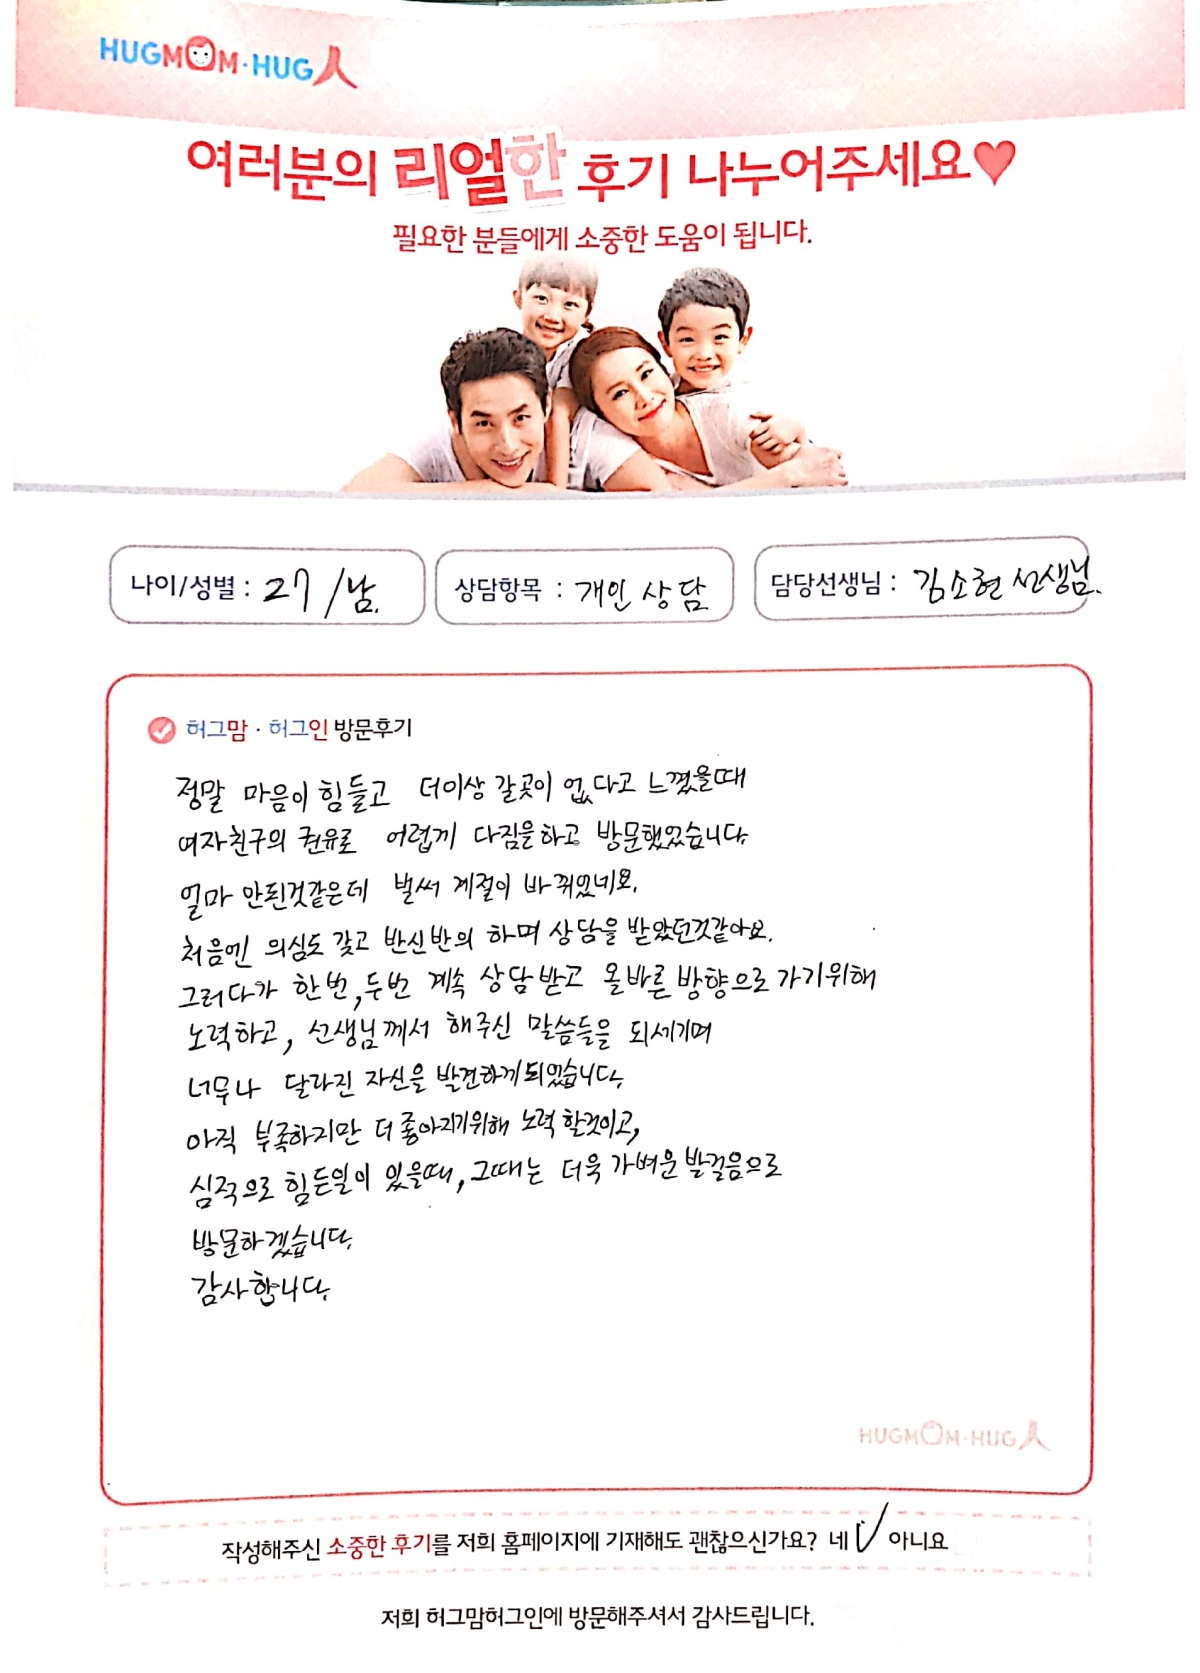 HUGMOM·HUG人
여러분의 리얼한 후기 나누어주세요♥
필요한 분들에게 소중한 도움이 됩니다.
나이/성별 : 27 / 남. 상담항목 : 개인 상담 담당선생님 : 김소현 선생님.
허그맘 · 허그인 방문후기
정말 마음이 힘들고 더이상 갈곳이 없다고 느꼈을때
여자친구의 권유로 어렵끼 다짐을하고 방문했었습니다.
얼마 안된것같은데 벌써 계절이 바뀌었네요.
처음엔 의심도 갖고 반신반의 하며 상담을 받았던것같아요.
그러다가 한번, 두번 계속 상담받고 올바른 방향으로 가기위해
노력하고, 선생님께서 해주신 말씀들을 되세기며
너무나 달라진 자신을 발견하게되었습니다.
아직 부족하지만 더 좋아지기위해 노력 할것이고,
심적으로 힘든일이 있을때, 그때는 더욱 가벼운 발걸음으로
방문하겠습니다.
감사합니다.
HUGMOM·HUG人
작성해주신 소중한 후기를 저희 홈페이지에 기재해도 괜찮으신가요? 네 ✓ 아니요
저희 허그맘허그인에 방문해주셔서 감사드립니다.